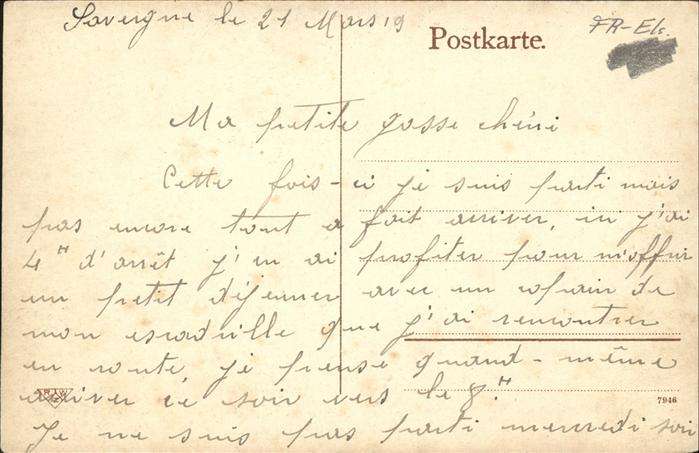 Saverne le 21 Mars 19
Postkarte.
FR-Els.
Ma petite gosse chéri
Cette fois-ci je suis parti mais
pas encore tout a fait arriver, ici j'ai
4H d'arrêt j'en ai profiter pour m'offrir
un petit déjeuner avec un copain de
mon escadrille que j'ai rencontrer
en route, je pense quand-même
arriver ce soir vers le 8.H
7946
Je ne suis pas parti mercredi soir